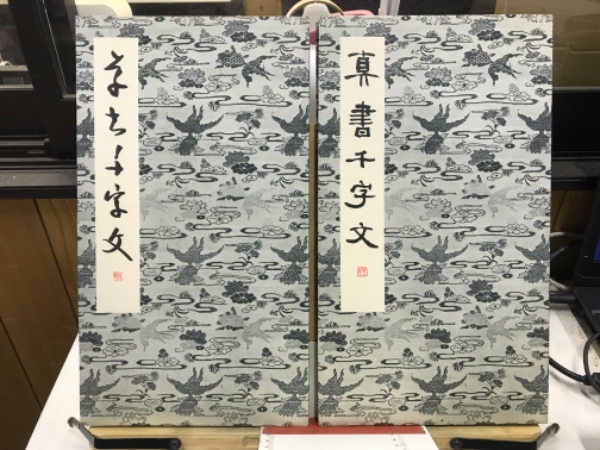 真書千字文
草書千字文